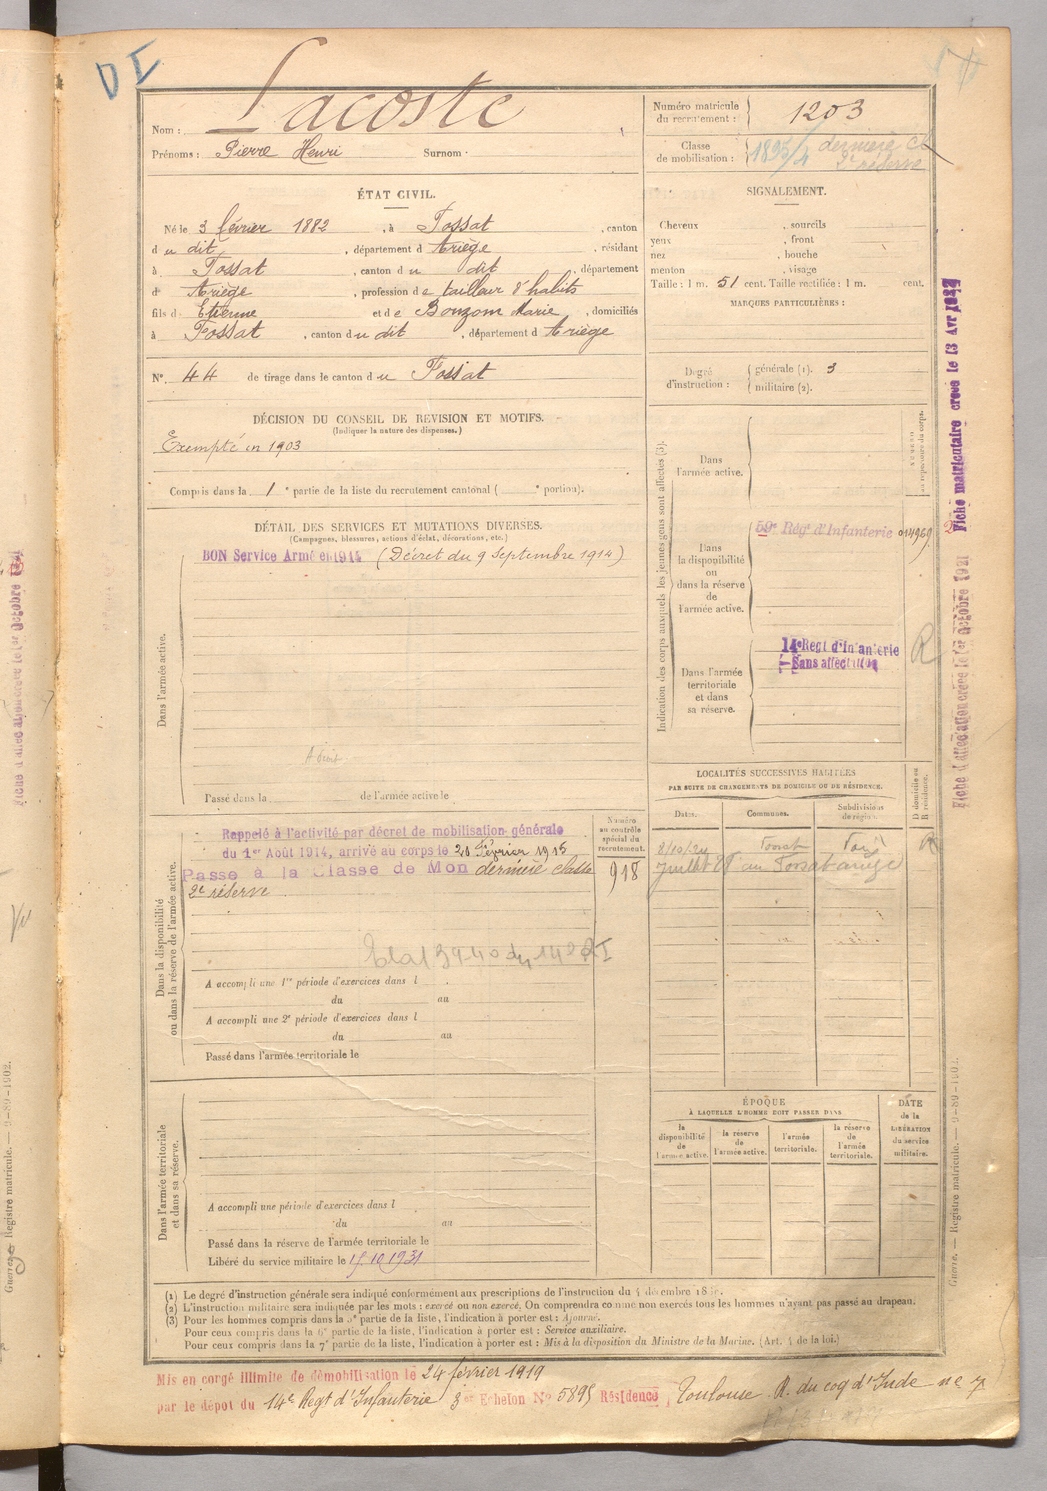 DI
Nom : Lacoste
Prénoms : Pierre Henri Surnom :
Numéro matricule du recrutement : 1203
Classe de mobilisation : dernière cl 2e réserve
ÉTAT CIVIL.
Né le 3 février 1882, à Fossat, canton
du dit, département d Ariège, résidant
à Fossat, canton du dit, département
d' Ariège, profession de tailleur d'habits
fils d' Etienne et de Bouzom Marie, domiciliés
à Fossat, canton du dit, département d Ariège
N° 44 de tirage dans le canton du Fossat
SIGNALEMENT.
Cheveux , sourcils
yeux , front
nez , bouche
menton , visage
Taille : 1 m. 51 cent. Taille rectifiée : 1 m. cent.
MARQUES PARTICULIÈRES :
Degré d'instruction : générale (1). 3
militaire (2).
DÉCISION DU CONSEIL DE RÉVISION ET MOTIFS.
(Indiquer la nature des dispenses.)
Exempté en 1903
Compris dans la 1e partie de la liste du recrutement cantonal ( e portion).
DÉTAIL DES SERVICES ET MUTATIONS DIVERSES.
(Campagnes, blessures, actions d'éclat, décorations, etc.)
BON Service Armé en 1914 (Décret du 9 Septembre 1914)
Dans l'armée active.
Passé dans la de l'armée active le
Indication des corps auxquels les jeunes gens sont affectés (3).
Dans l'armée active.
Dans la disponibilité ou dans la réserve de l'armée active.
59e Rég d'Infanterie 014969
Dans l'armée territoriale et dans sa réserve.
14e Regt d'Infanterie
Sans affectation
R
Fiche matriculaire créée le 13 Avr
Fiche d'affectation créée le 1er Octobre 1921
LOCALITÉS SUCCESSIVES HABITÉES
PAR SUITE DE CHANGEMENTS DE DOMICILE OU DE RÉSIDENCE.
Dates. Communes. Subdivisions de région. D domicile ou R résidence.
Fossat
Juillet au Fossat ariège
Dans la disponibilité ou dans la réserve de l'armée active.
Numéro au contrôle spécial du recrutement.
918
Rappelé à l'activité par décret de mobilisation générale
du 1er Août 1914, arrivé au corps le 20 Février 1915
Passé à la Classe de Mon dernière classe
2e réserve
A accompli une 1re période d'exercices dans l
du au
A accompli une 2e période d'exercices dans l
du au
Passé dans l'armée territoriale le
Dans l'armée territoriale et dans sa réserve.
A accompli une période d'exercices dans l
du au
Passé dans la réserve de l'armée territoriale le
Libéré du service militaire le 15.10.1931
ÉPOQUE
À LAQUELLE L'HOMME DOIT PASSER DANS
la disponibilité de l'armée active.
la réserve de l'armée active.
l'armée territoriale.
la réserve de l'armée territoriale.
DATE de la LIBÉRATION du service militaire.
(1) Le degré d'instruction générale sera indiqué conformément aux prescriptions de l'instruction du 4 décembre
(2) L'instruction militaire sera indiquée par les mots : exercé ou non exercé. On comprendra comme non exercés tous les hommes n'ayant pas passé au drapeau.
(3) Pour les hommes compris dans la 5e partie de la liste, l'indication à porter est : Ajourné.
Pour ceux compris dans la 6e partie de la liste, l'indication à porter est : Service auxiliaire.
Pour ceux compris dans la 7e partie de la liste, l'indication à porter est : Mis à la disposition du Ministre de la Marine. (Art. 4 de la loi.)
Guerre. — Registre matricule. — 9-89-1902.
Mis en congé illimité de démobilisation le 24 février 1919
par le dépôt du 14e Regt d'Infanterie 3er Echelon No 5895 Résidence, Toulouse R. du coq d'Inde ne 7